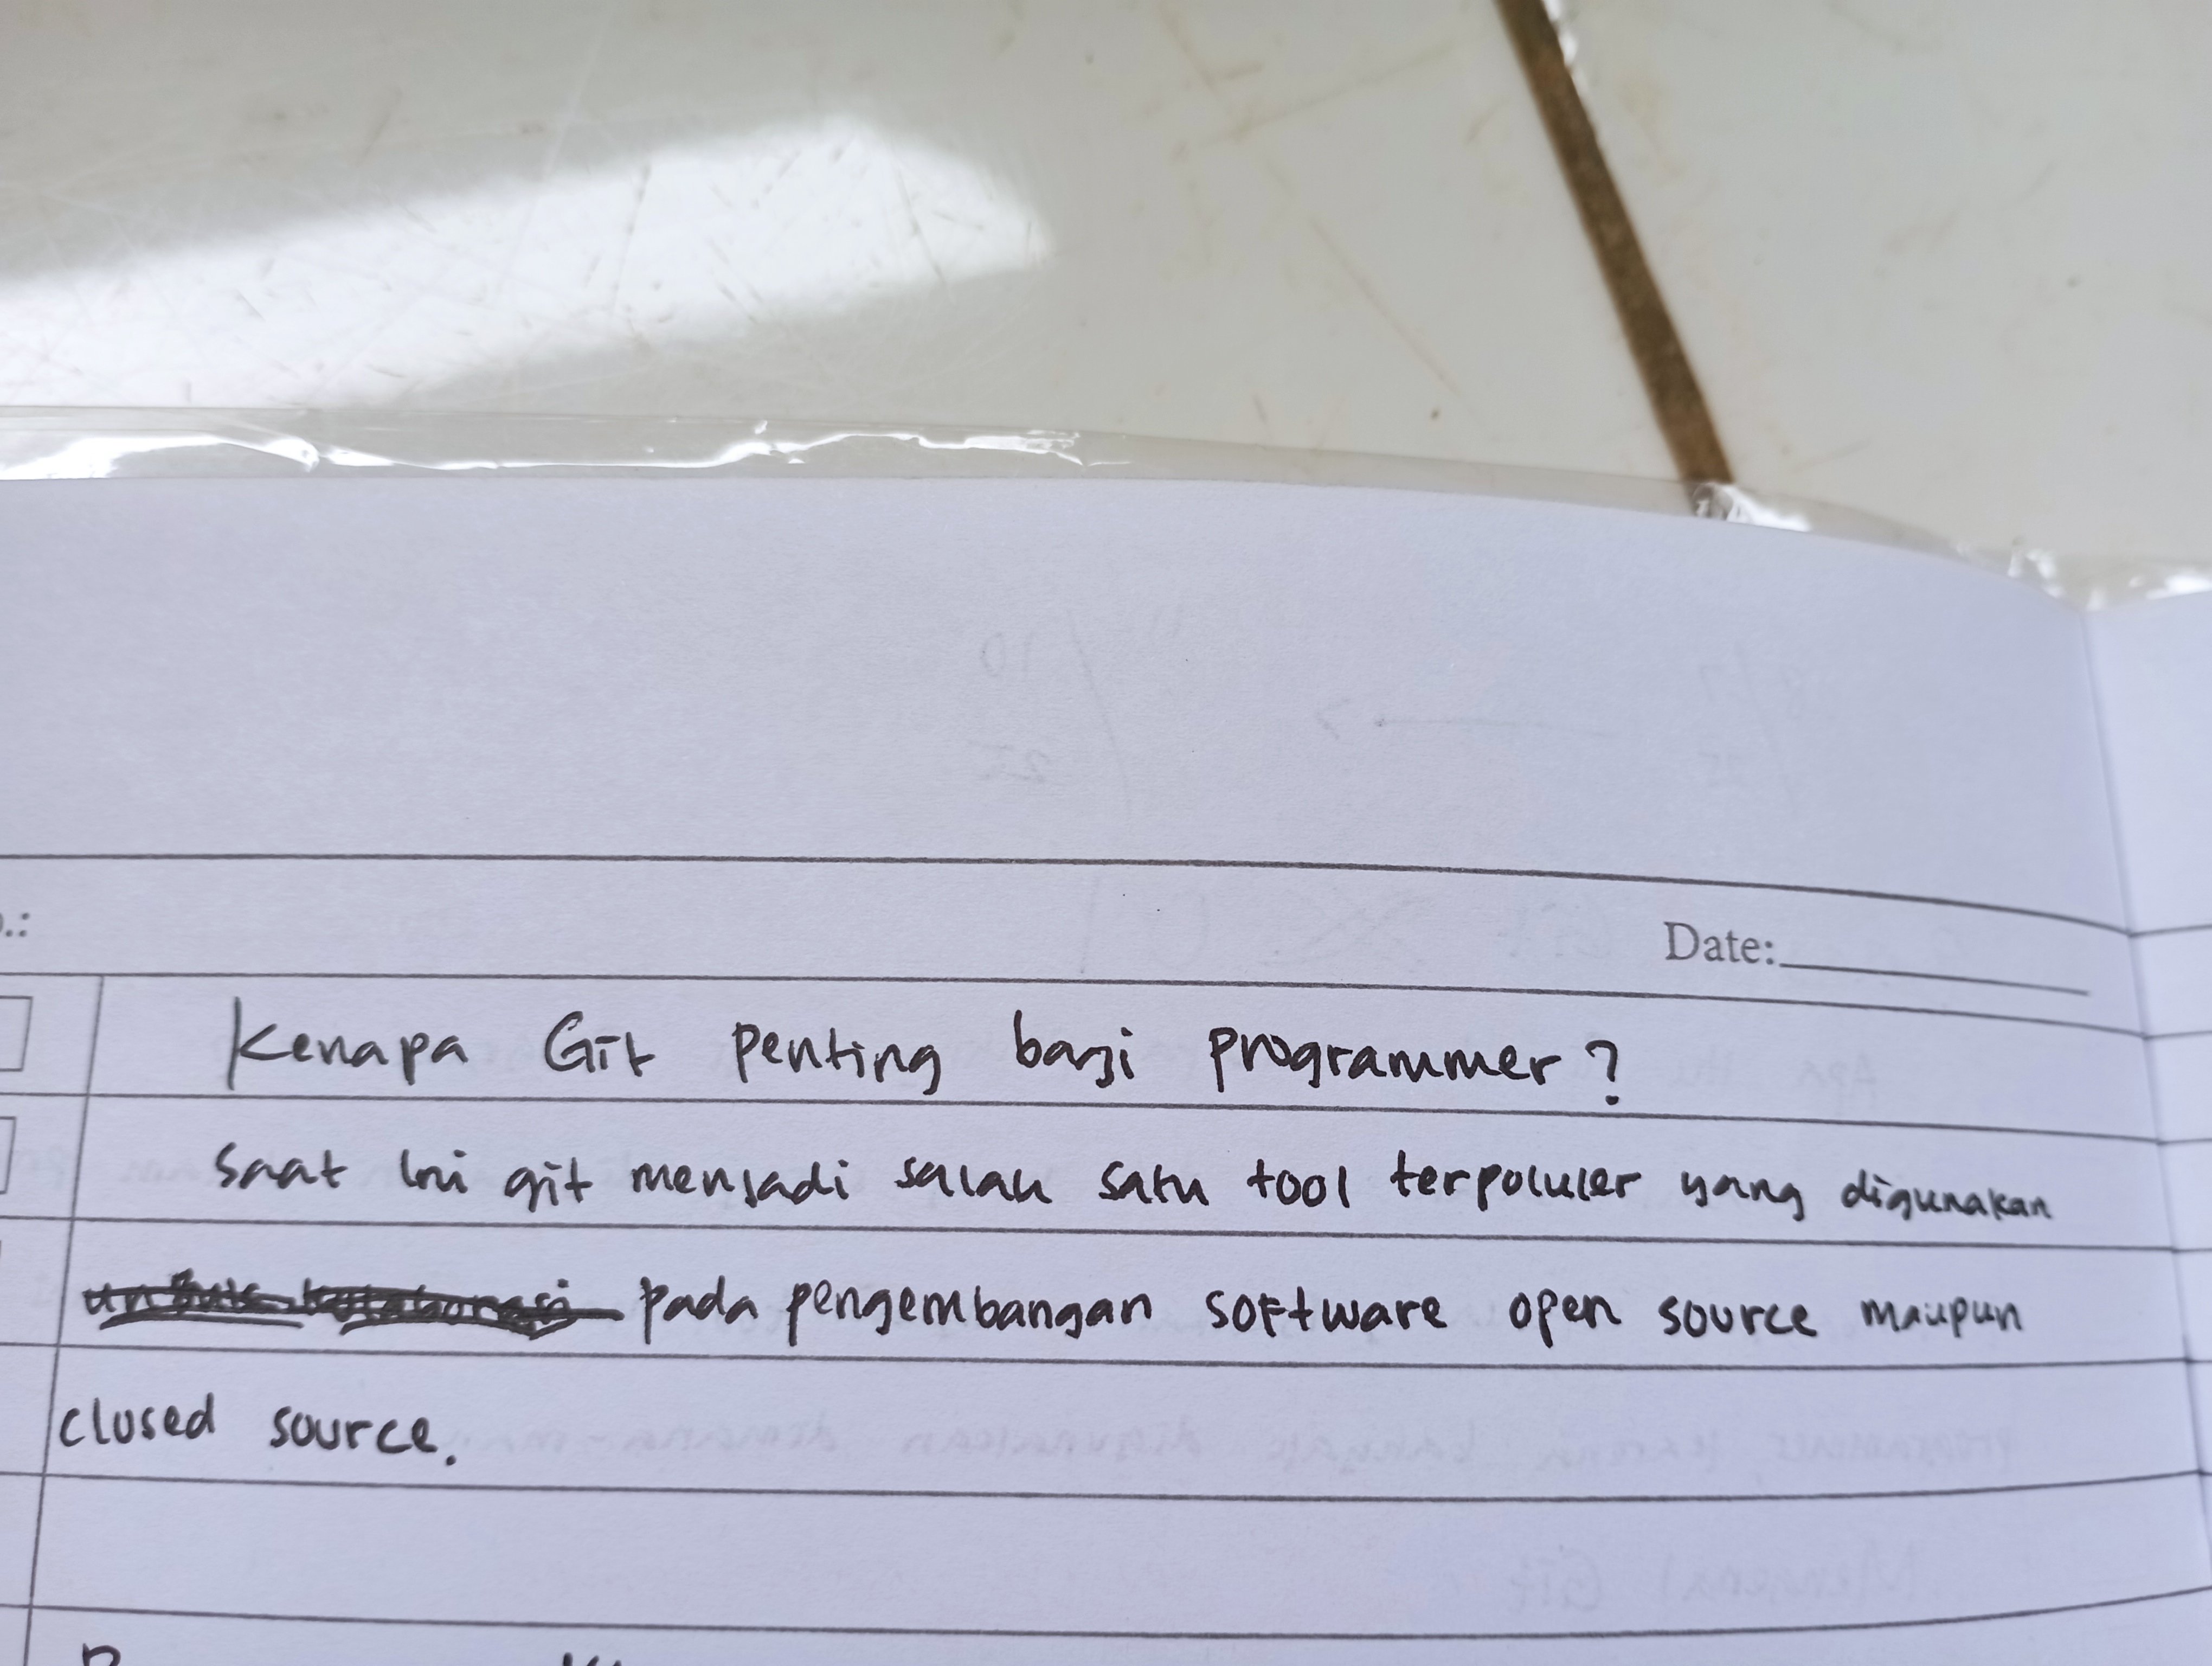 Date:
Kenapa Git penting bagi programmer?
Saat ini git menjadi salah satu tool terpoluler yang digunakan
pada pengembangan software open source maupun
closed source.